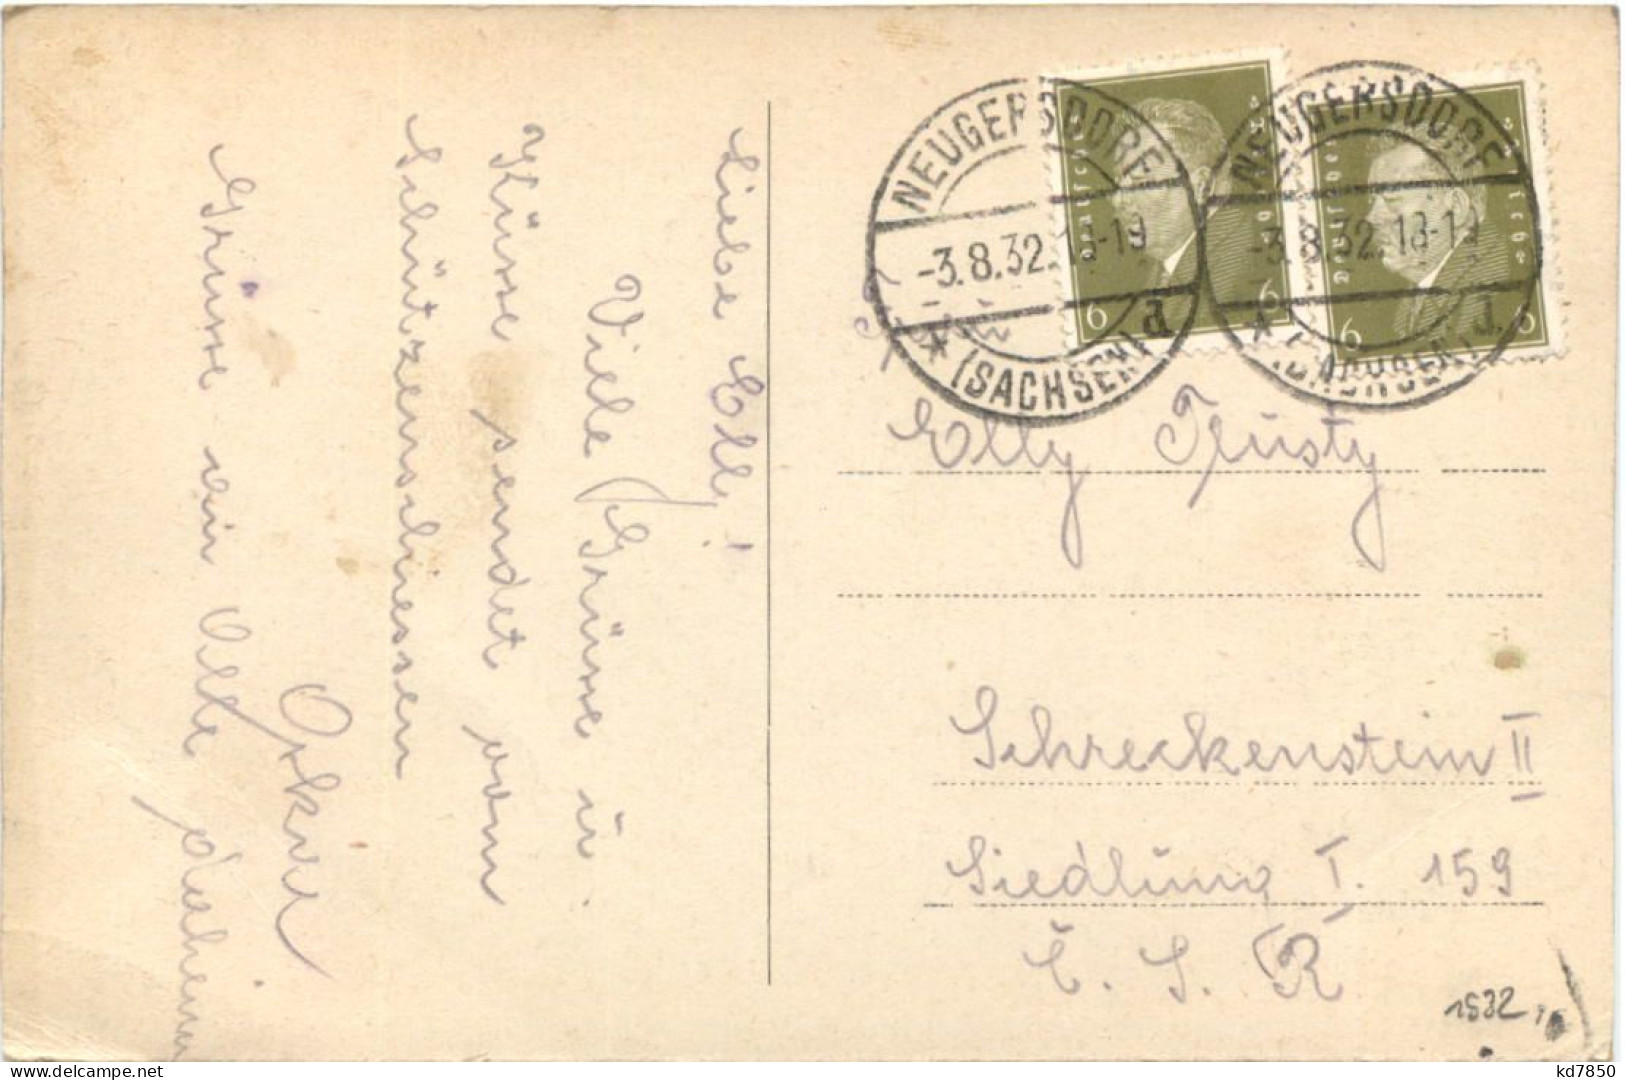 Liebe Elly!
Viele Grüsse u.
Küsse sendet vom
Schützenschiessen
Oskar
Grüsse an Alle daheim
NEUGERSDORF
-3.8.32. 18-19
* (SACHSEN) d.
Deutsches Reich
6 6
NEUGERSDORF
-3.8.32. 18-19
* (SACHSEN) d.
Deutsches Reich
6 6
Elly
Schreckenstein II
Siedlung I. 159
Č. S. R
1932
kd7850